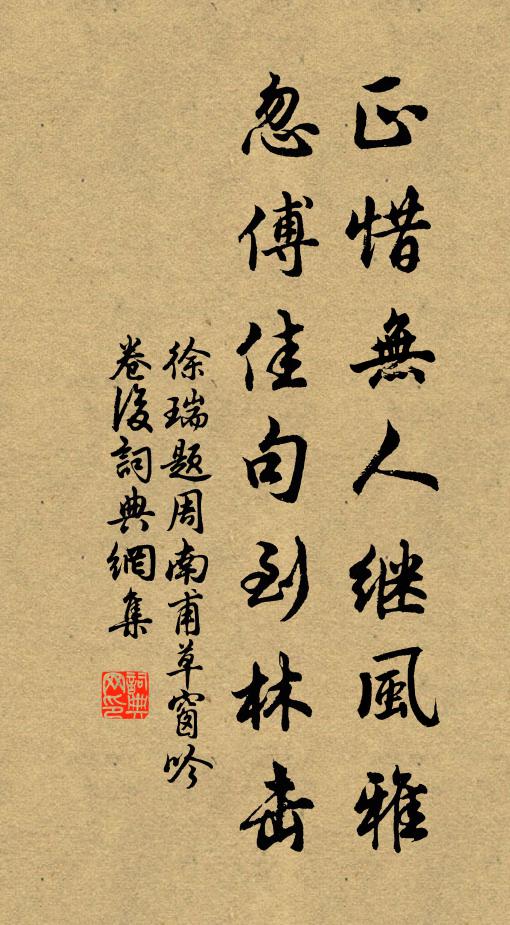 正惜無人继風雅
忽傅佳句到林
徐瑞题周南甫草窗吟
卷後詞典網集
詞典
网印